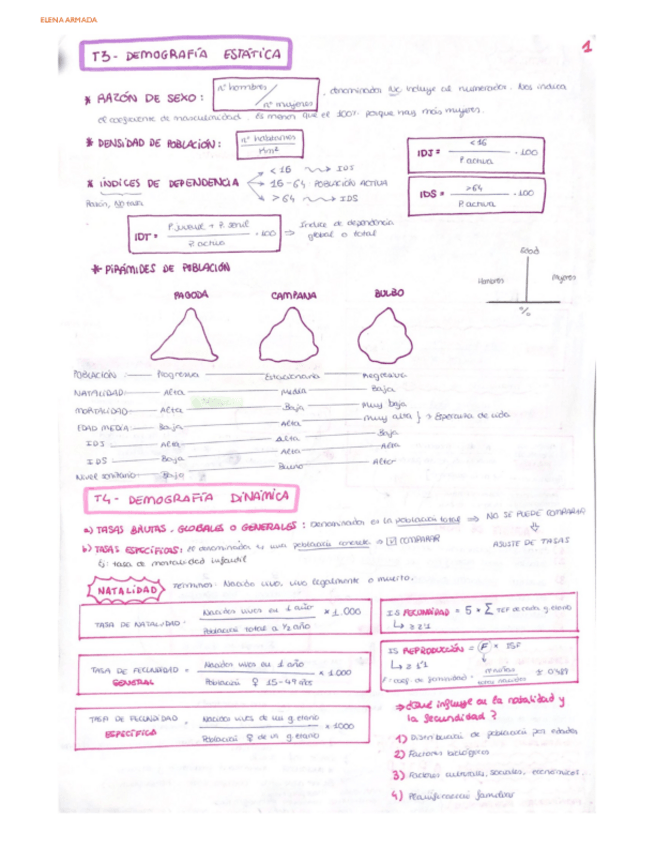 ELENA ARMADA
1
T3- DEMOGRAFÍA ESTÁTICA
* RAZÓN DE SEXO: nº hombres / nº mujeres, denominador NO incluye al numerador. Nos indica
el coeficiente de masculinidad. Es menor que el 100% porque hay más mujeres.
* DENSIDAD DE POBLACIÓN: nº habitantes / Km²
IDJ = <16 / P activa · 100
* ÍNDICES DE DEPENDENCIA
< 16 → IDS
16-64: POBLACIÓN ACTIVA
> 64 → IDS
Razón, No
IDS = >64 / P. activa · 100
IDT = P juvenil + P. senil / P. activa · 100 ⇒ Índice de dependencia
global o total
* PIRÁMIDES DE POBLACIÓN
Edad
Hombres
Mujeres
%
PAGODA CAMPANA BULBO
POBLACIÓN Progresiva Estacionaria Regresiva
NATALIDAD Alta Media Baja
MORTALIDAD Alta Baja Muy baja
EDAD MEDIA Baja Alta Muy alta } → Esperanza de vida
IDS Alta Alta Baja
IDS Baja Alta Alta
Nivel sanitario Bajo Bueno Alto
T4- DEMOGRAFÍA DINÁMICA
a) TASAS BRUTAS, GLOBALES O GENERALES: Denominador es la población total ⇒ NO SE PUEDE COMPARAR
b) TASAS ESPECÍFICAS: el denominador es una población concreta ⇒ COMPARAR
AJUSTE DE TASAS
Ej: tasa de mortalidad infantil
NATALIDAD
Términos: Nacido vivo, vivo legalmente o muerto.
TASA DE NATALIDAD: Nacidos vivos en 1 año / Población total a ½ año × 1.000
IS FECUNDIDAD = 5 * Σ TEF de cada g. etario
↳ ≥ 2'1
TASA DE FECUNDIDAD GENERAL = Nacidos vivos en 1 año / Población ♀ 15-49 años × 1.000
IS REPRODUCCIÓN = F × ISF
↳ ≥ 1'1
F = coef. de feminidad = / ± 0'487
TASA DE FECUNDIDAD ESPECÍFICA = Nacidos vivos de un g. etario / Población ♀ de un g. etario × 1000
→ ¿Qué influye en la natalidad y
la fecundidad?
1) Distribución de población por edades
2) Factores biológicos
3) Factores culturales, sociales, económicos.
4) Planificación familiar